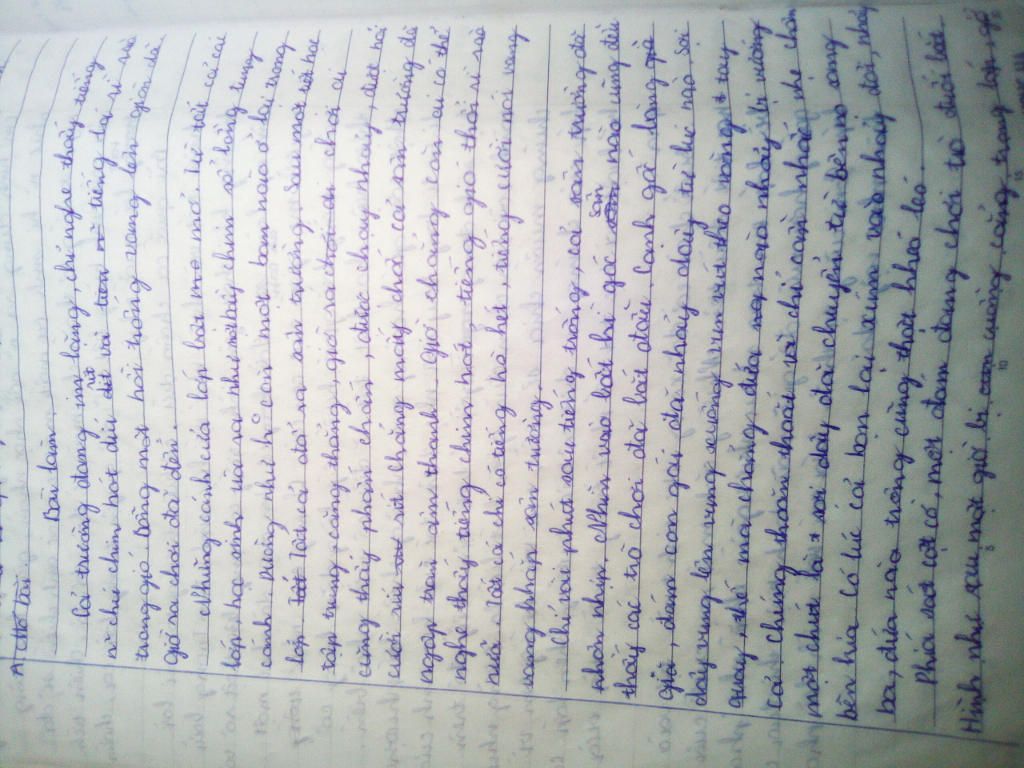 Bài làm.
Cả trường đang im lặng, chỉ nghe thấy tiếng
vì chú chim hót dìu dịu và tiếng lá rì rào
trong gió. Bỗng một hồi trống vang lên giòn dã
giờ ra chơi đã đến.
Những cánh cửa lớp bắt mở. Từ tất cả cái
lớp, học sinh ùa ra như một bầy chim sổ lồng tung
cánh. Dường như không còn một bạn nào ở lại trong
lớp. Tất cả đổ ra sân trường. Sau một tiết học
tập trung, căng thẳng, giờ ra chơi ai
cũng thấy phấn chấn, được chạy nhảy, được nói
cười ríu rít. Chẳng mấy chốc cái sân trường đã
ngập tràn âm thanh. Giờ chẳng còn ai có thể
nghe thấy tiếng chim hót, tiếng gió thổi rì rào
nữa. Tất cả chỉ có tiếng hò hét, tiếng cười nói vang
vang khắp sân trường.
Chỉ vài phút sau tiếng trống, cái sân trường đã
nhộn nhịp. Nhìn vào bất kì góc sân nào cũng đều
thấy các trò chơi đã bắt đầu. Cạnh gốc bàng già
, đám con gái đã nhảy dây từ lúc nào, sợi
dây vung lên vung xuống vun vút theo vòng tay
quay, thế mà chẳng đứa nào nhảy bị vướng
cả, chúng thoăn thoắt và chỉ cần nhấc nhẹ chân
một chút là sợi dây đã chuyển từ bên nọ sang
bên kia. Có lúc cả bọn lại xúm vào nhảy đôi, nhảy
ba, đứa nào trông cũng thật khéo léo.
Phía sát cột cờ, một đám đang chơi trò đuổi bắt.
Hình như sau một giờ bị cuồng cẳng trong lớp, giờ